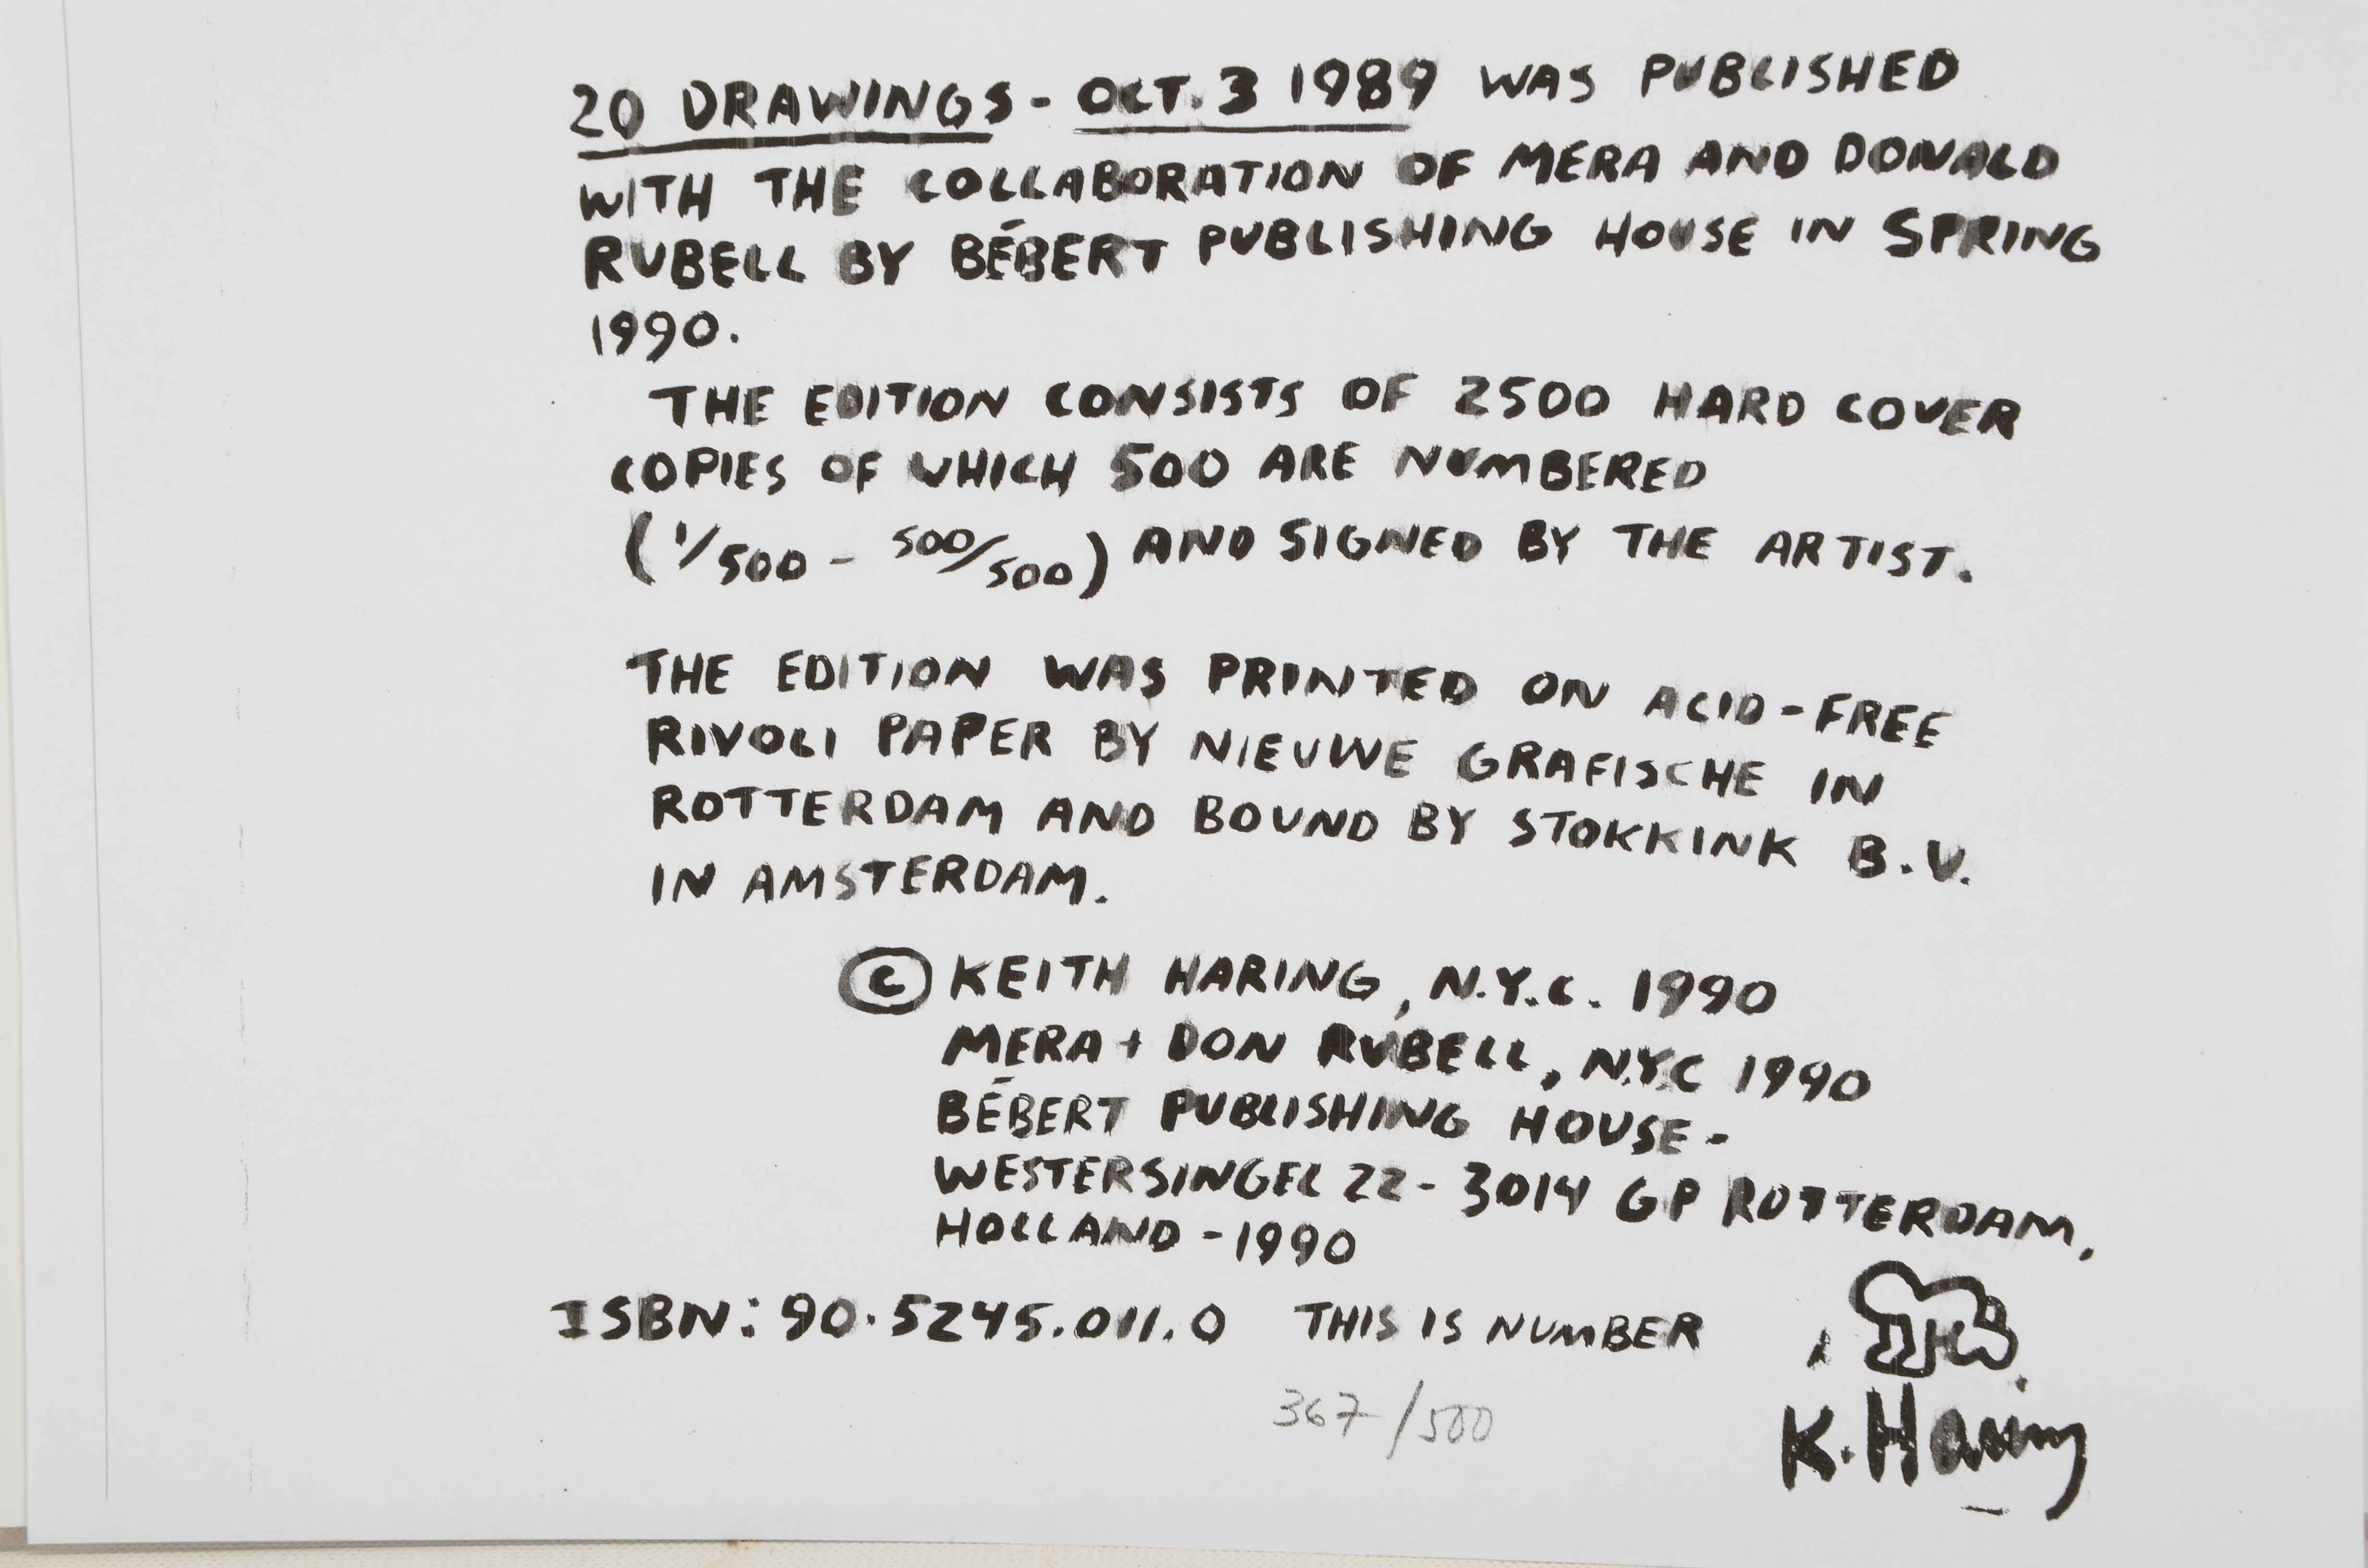 20 DRAWINGS - OCT. 3 1989 WAS PUBLISHED
WITH THE COLLABORATION OF MERA AND DONALD
RUBELL BY BÉBERT PUBLISHING HOUSE IN SPRING
1990.
THE EDITION CONSISTS OF 2500 HARD COVER
COPIES OF WHICH 500 ARE NUMBERED
(1/500 - 500/500) AND SIGNED BY THE ARTIST.
THE EDITION WAS PRINTED ON ACID-FREE
RIVOLI PAPER BY NIEUWE GRAFISCHE IN
ROTTERDAM AND BOUND BY STOKKINK B.V.
IN AMSTERDAM.
© KEITH HARING, N.Y.C. 1990
MERA + DON RUBELL, N.Y.C 1990
BÉBERT PUBLISHING HOUSE -
WESTERSINGEL 22 - 3014 GP ROTTERDAM,
HOLLAND - 1990
ISBN: 90.5245.011.0 THIS IS NUMBER
367/500
K. Haring